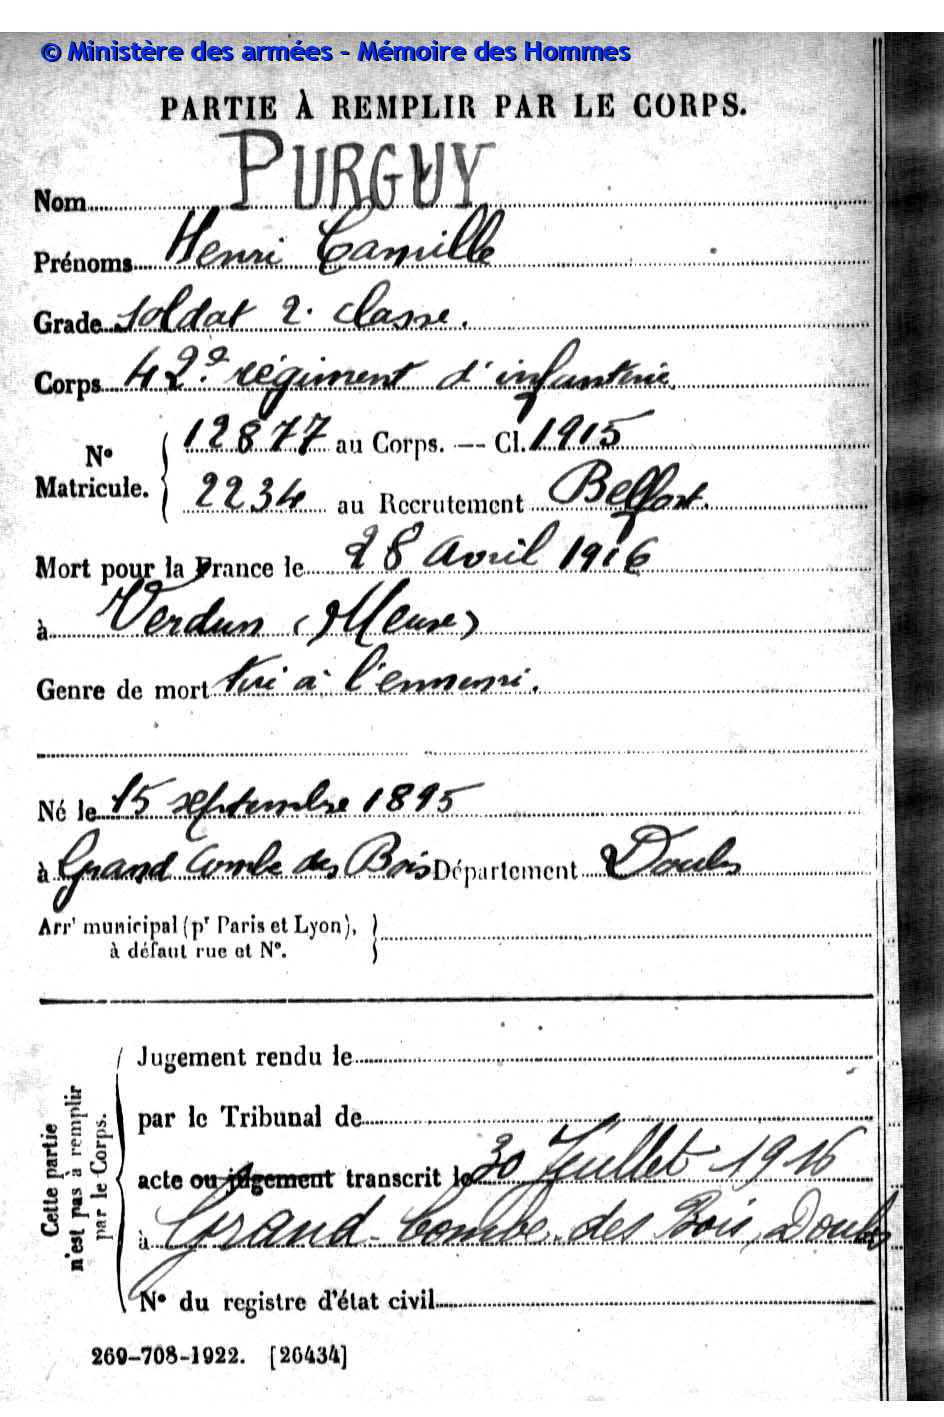 © Ministère des armées - Mémoire des Hommes
PARTIE À REMPLIR PAR LE CORPS.
Nom PURGUY
Prénoms Henri Camille
Grade soldat 2e classe.
Corps 42e régiment d'infanterie
N° Matricule. 12877 au Corps. — Cl. 1915
2234 au Recrutement Belfort.
Mort pour la France le 28 avril 1916
à Verdun (Meuse)
Genre de mort tué à l'ennemi.
Né le 15 septembre 1895
à Grand Combe des Bois Département Doubs
Arrt municipal (pr Paris et Lyon),
à défaut rue et N°.
Cette partie
n'est pas à remplir
par le Corps.
Jugement rendu le
par le Tribunal de
acte ou jugement transcrit le 30 Juillet 1916
à Grand-Combe-des Bois, Doubs
N° du registre d'état civil
269-708-1922. [26434]